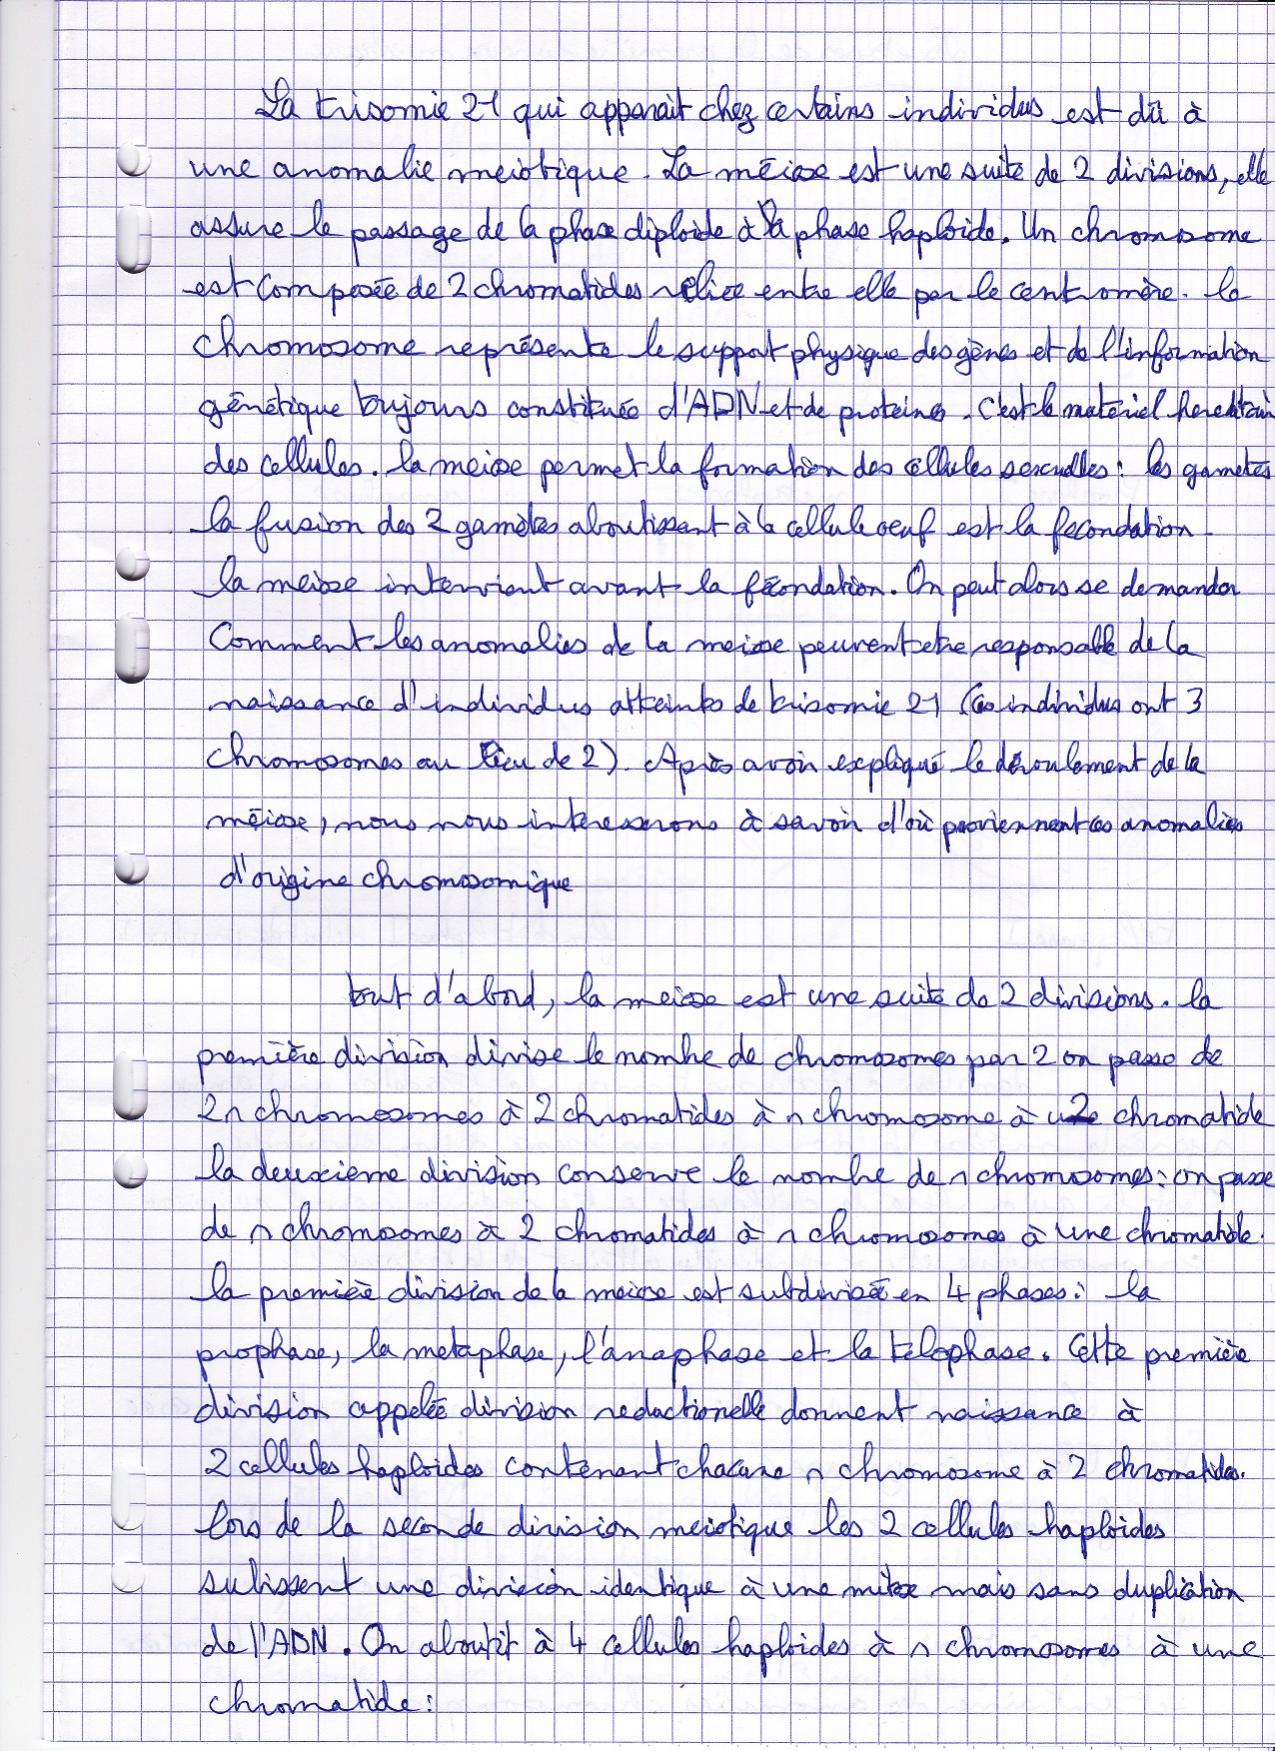 La trisomie 21 qui apparait chez certains individus est dû à
une anomalie meiotique. La méiose est une suite de 2 divisions, elle
assure le passage de la phase diploide à la phase haploide. Un chromosome
est Composée de 2 chromatides reliée entre elle par le centromère. le
chromosome représente le support physique des gènes et de l'information
génétique toujours constituée d'ADN et de proteines. C'est le matériel hereditair
des cellules. la meiose permet la formation des cellules sexuelles : les gametes
la fusion des 2 gametes aboutissant à la cellule oeuf est la fecondation.
la meiose intervient avant la fécondation. On peut alors se demander
Comment les anomalies de la meiose peuvent etre responsable de la
naissance d'individus atteints de trisomie 21 (ces individus ont 3
chromosomes au lieu de 2). Après avoir expliqué le déroulement de la
méiose, nous nous interesserons à savoir d'où proviennent ces anomalies
d'origine chromosomique
tout d'abord, la meiose est une suite de 2 divisions. la
première division divise le nombre de chromosomes par 2 on passe de
2n chromosomes à 2 chromatides à n chromosome à 2 chromatide
la deuxieme division conserve le nombre de n chromosomes : on passe
de n chromosomes à 2 chromatides à n chromosomes à une chromatide.
la première division de la meiose est subdivisée en 4 phases : la
prophase, la metaphase, l'anaphase et la telophase. Cette première
division appelée division reductionelle donnent naissance à
2 cellules haploides contenant chacune n chromosome à 2 chromatides.
lors de la seconde division meiotique les 2 cellules haploides
subissent une division identique à une mitose mais sans duplication
de l'ADN. On aboutit à 4 cellules haploides à n chromosomes à une
chromatide :